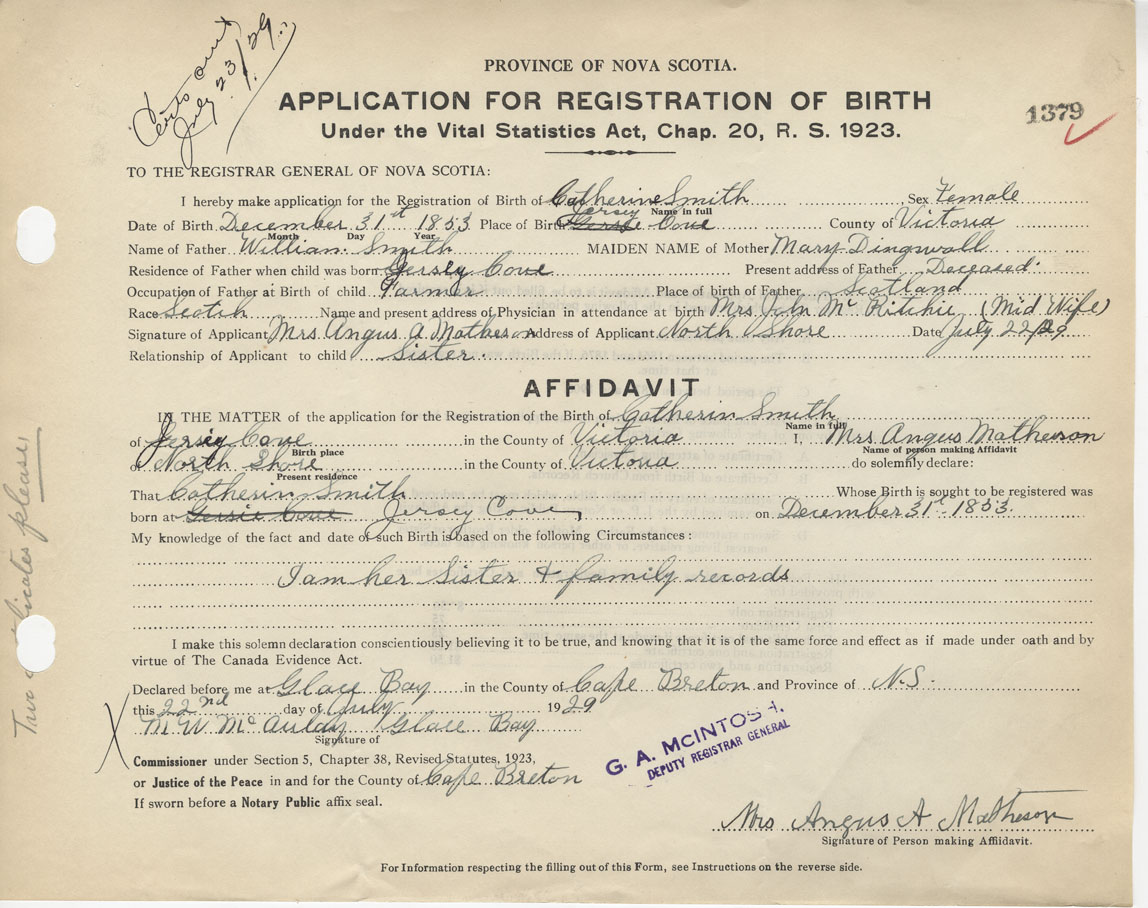 Certs out
July 23/29.
PROVINCE OF NOVA SCOTIA.
APPLICATION FOR REGISTRATION OF BIRTH
1379
Under the Vital Statistics Act, Chap. 20, R. S. 1923.
TO THE REGISTRAR GENERAL OF NOVA SCOTIA:
I hereby make application for the Registration of Birth of Catherine Smith Sex Female
Name in full
Date of Birth December 31st 1853 Place of Birth Gersie Jersey Cove County of Victoria
Month Day Year
Name of Father William Smith MAIDEN NAME of Mother Mary Dingwall
Residence of Father when child was born Jersey Cove Present address of Father Deceased
Occupation of Father at Birth of child Farmer Place of birth of Father Scotland
Race Scotch Name and present address of Physician in attendance at birth Mrs John Mc Ritchie (Mid Wife)
Signature of Applicant Mrs Angus A Matheson Address of Applicant North Shore Date July 22/29
Relationship of Applicant to child Sister
AFFIDAVIT
IN THE MATTER of the application for the Registration of the Birth of Catherin Smith
Name in full
of Jersey Cove in the County of Victoria I, Mrs Angus Matheson
Birth place Name of person making Affidavit
of North Shore in the County of Victoria do solemnly declare:
Present residence
That Catherin Smith Whose Birth is sought to be registered was
born at Gersie Cove Jersey Cove on December 31st 1853.
My knowledge of the fact and date of such Birth is based on the following Circumstances:
I am her Sister & family records
I make this solemn declaration conscientiously believing it to be true, and knowing that it is of the same force and effect as if made under oath and by
virtue of The Canada Evidence Act.
Declared before me at Glace Bay in the County of Cape Breton and Province of N.S.
this 22nd day of July 1929
X M W McAulay Glace Bay
Signature of
Commissioner under Section 5, Chapter 38, Revised Statutes, 1923,
or Justice of the Peace in and for the County of Cape Breton
If sworn before a Notary Public affix seal.
G. A. MCINTOSH.
DEPUTY REGISTRAR GENERAL
Mrs Angus A Matheson
Signature of Person making Affidavit.
For Information respecting the filling out of this Form, see Instructions on the reverse side.
Two please